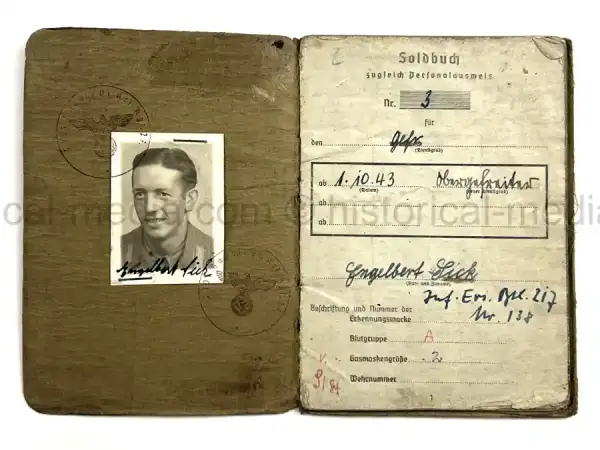 Engelbert Sick
Soldbuch
zugleich Personalausweis
Nr. 3
für
den Gefr.
(Dienstgrad)
ab 1.10.43 Obergefreiter
(Datum) (neuer Dienstgrad)
ab
ab
Engelbert Sick
(Vor- und Zuname)
Inf. Ers. Btl. 217
Beschriftung und Nummer der
Erkennungsmarke Nr. 138
Blutgruppe A
Gasmaskengröße 2
Wehrnummer
1
cal-media.com © historical-media